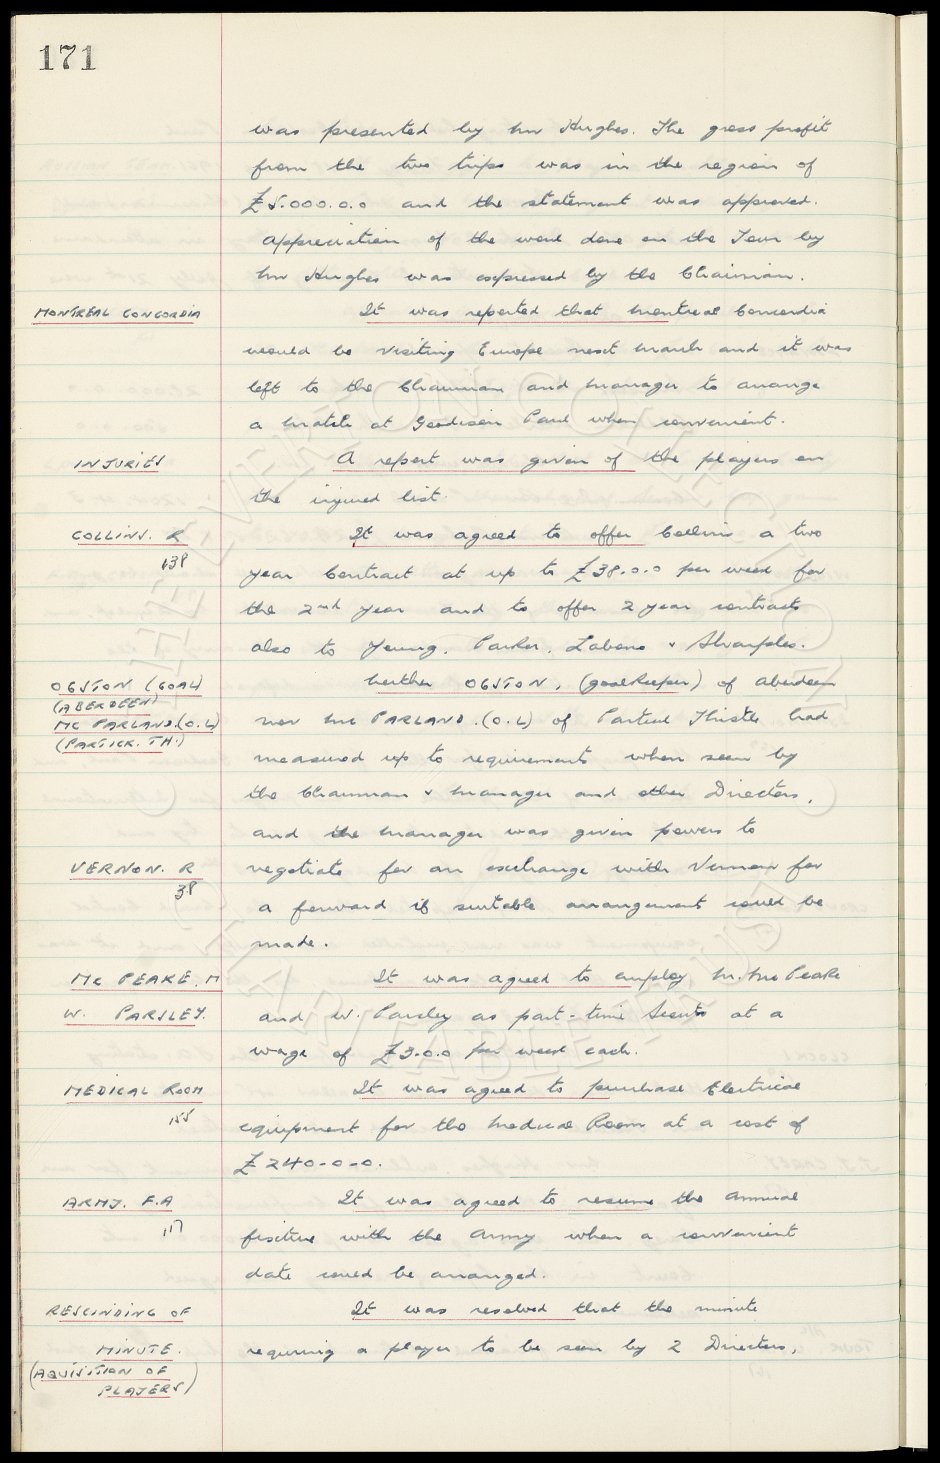 171
was presented by Mr Hughes. The gross profit
from the two trips was in the region of
£5.000.0.0 and the statement was approved.
Appreciation of the work done on the Tour by
Mr Hughes was expressed by the Chairman.
MONTREAL CONCORDIA It was reported that Montreal Concordia
would be visiting Europe next March and it was
left to the Chairman and Manager to arrange
a match at Goodison Park when convenient.
INJURIES A report was given of the players on
the injured list.
COLLINS. R It was agreed to offer Collins a two
138 year Contract at up to £38.0.0 per week for
the 2nd year and to offer 2 year contracts
also to Young, Parker, Labone & Sharples.
OGSTON (GOAL) Neither OGSTON, (goalkeeper) of Aberdeen
(ABERDEEN)
MC PARLAND.(O.L) nor Mc PARLAND.(O.L) of Partick Thistle had
(PARTICK. TH.)
measured up to requirements when seen by
the Chairman & Manager and other Directors,
and the Manager was given powers to
VERNON. R negotiate for an exchange with Vernon for
38 a forward if suitable arrangements could be
made.
MC PEAKE. M It was agreed to employ M. Mc Peake
W. PARSLEY. and W. Parsley as part-time Scouts at a
wage of £3.0.0 per week each.
MEDICAL ROOM It was agreed to purchase Electrical
155 equipment for the Medical Room at a cost of
£240-0-0.
ARMY. F.A It was agreed to resume the annual
117 fixture with the Army when a convenient
date could be arranged.
RESCINDING OF It was resolved that the minute
MINUTE. requiring a player to be seen by 2 Directors,
(AQUISITION OF
PLAYERS)